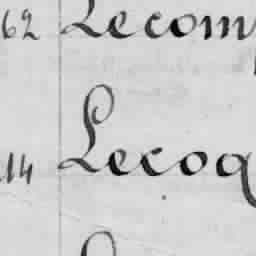 62 Lecom
14 Lecoq